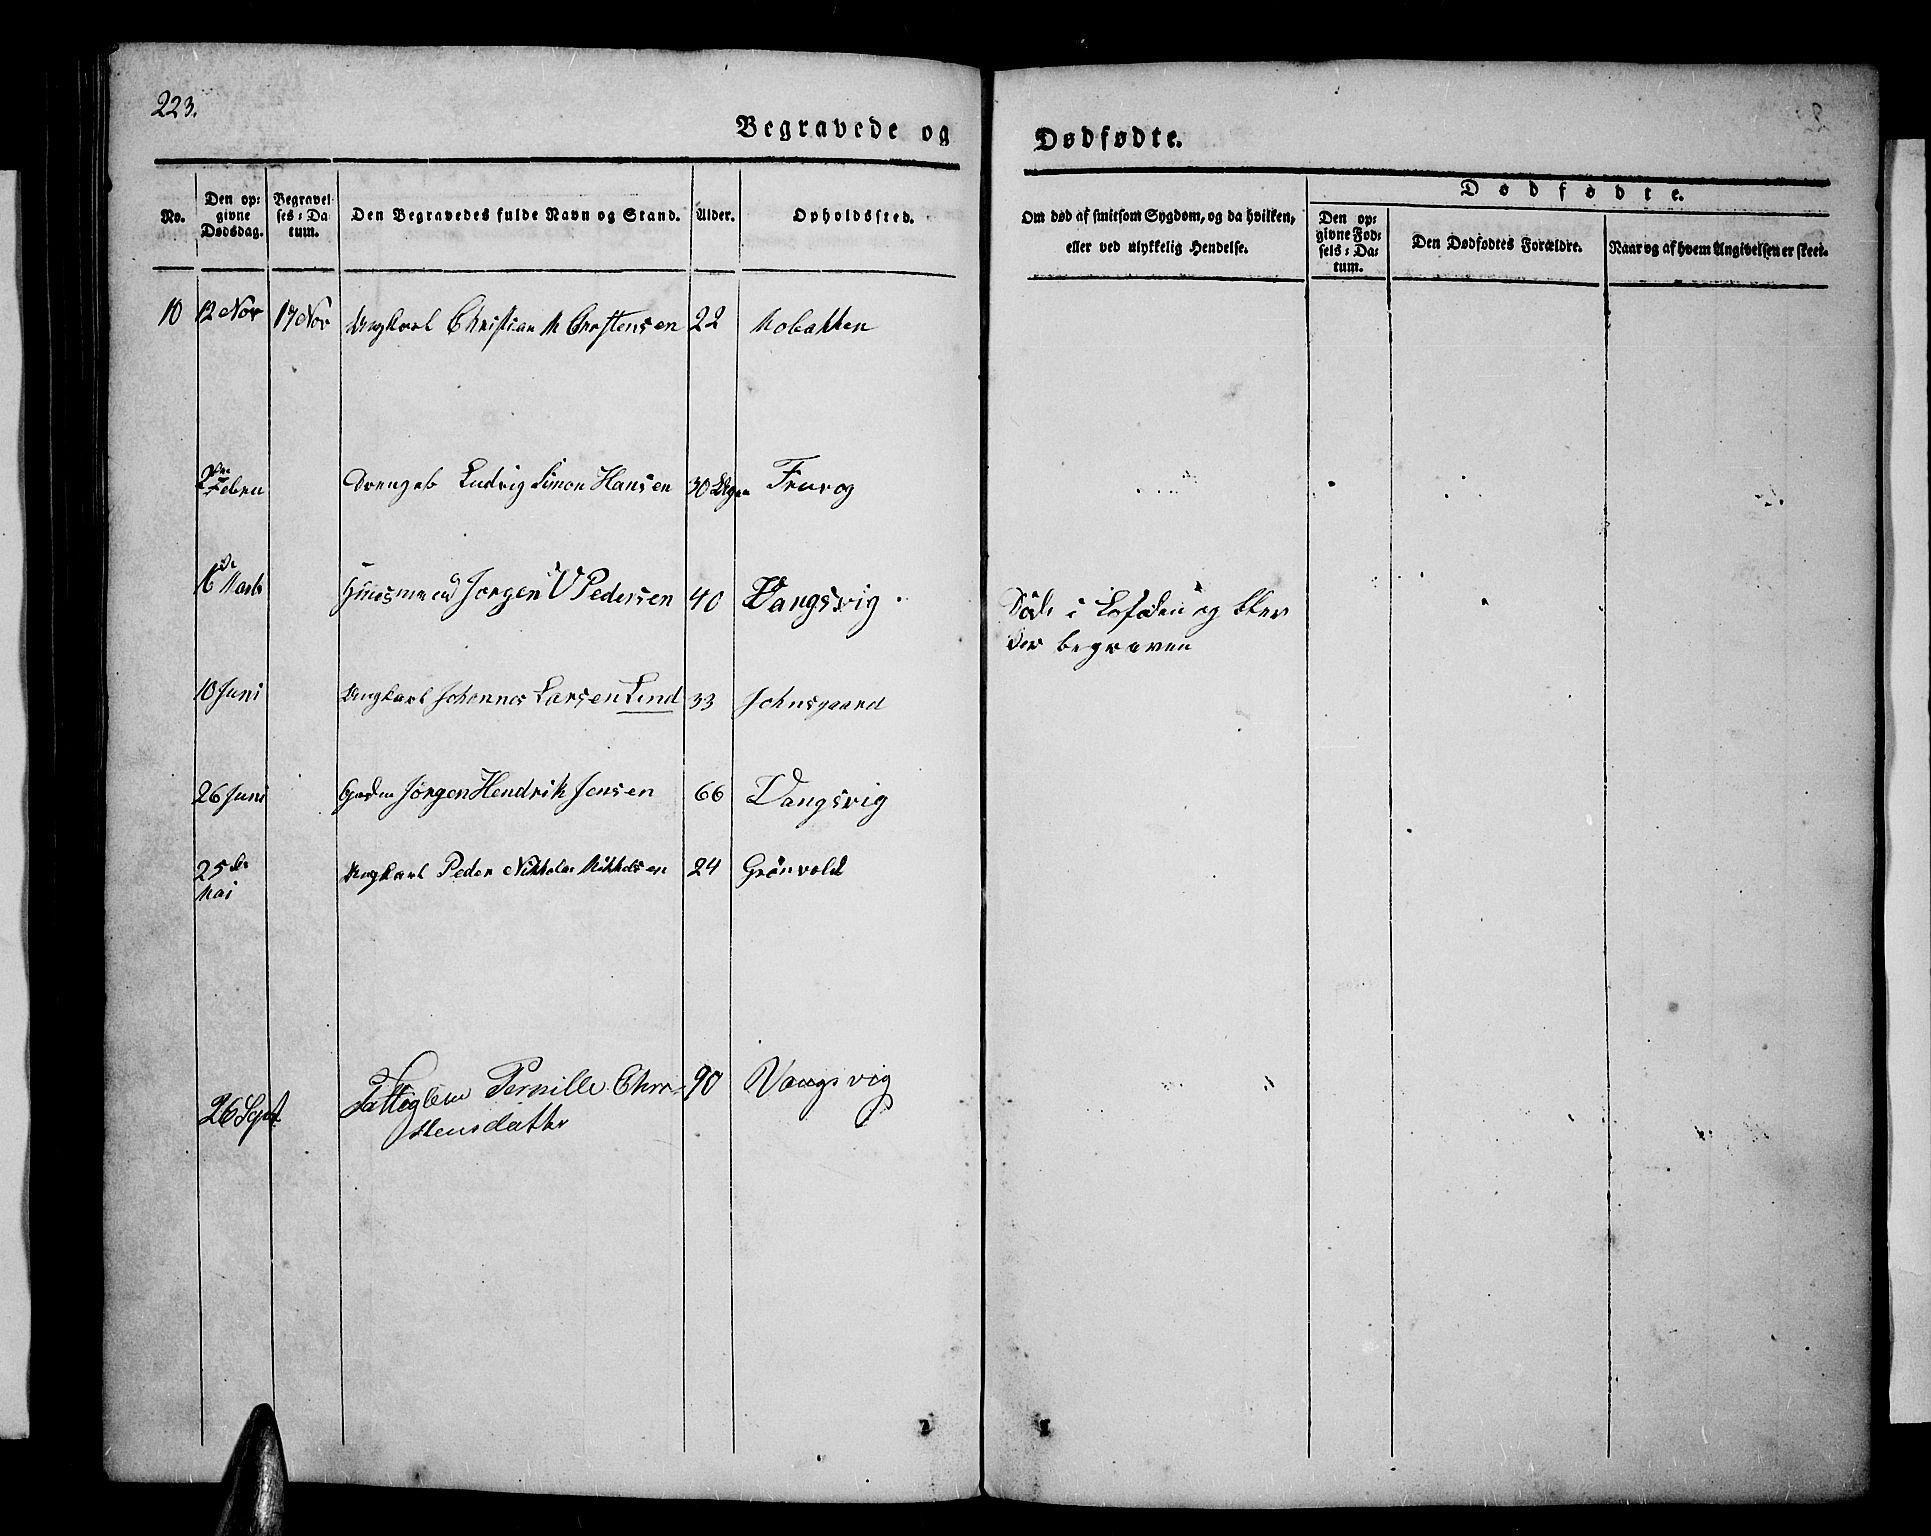 223.
Begravede og
Dødfødte.
No.
Den op-
givne
Dødsdag.
Begravel-
ses-Da-
tum.
Den Begravedes fulde Navn og Stand.
Alder.
Opholdssted.
Om død af smitsom Sygdom, og da hvilken,
eller ved ulykkelig Hendelse.
Dødfødte.
Den op-
givne Fød-
sels-Da-
tum.
Den Dødfødtes Forældre.
Naar og af hvem Angivelsen er skeet.
10 12 Nov 17 Nov Ungkarl Christian M Cerstensen 22 Mobakken
2den Febru Drengeb Ludvig Simon Hansen 30 Uger
16de Marts Huusmand Jørgen V Pedersen 40 Vangsvig
Døde i Lofoden og blev
der begraven
10 Juni Ungkarl Johannes Larsen Lind 33 Johnsgaard
26 Juni Jørgen Hendrik Jensen 66 Vangsvig
25de Ungkarl Peder Nikholai Mikkelsen 24 Grönvold
Mai
26 Sept Fattiglem Pernille Chri- 90 Vangsvig
stensdatter